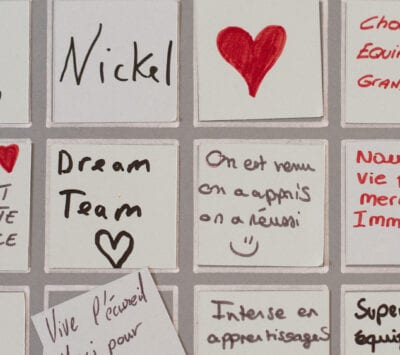 Nickel
Cho
Equi
Gran
Dream
Team
On est venu
on a appris
on a réussi
Nou
Vie
mer
Imm
Vive l'écureil
pour
Intense en
apprentissages
Super
équip